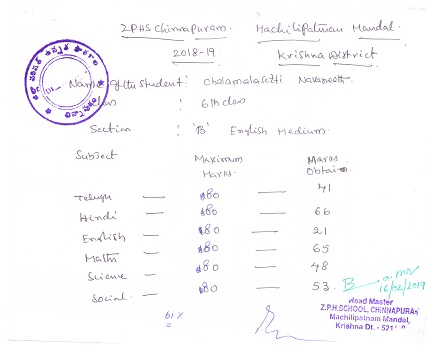 Z.P.H.S Chinnapuram. Machilipatnam Mandal.
2018-19 Krishna District
Name of the Student: Cholamalasetti Navaneeth
Class : 6th class
Section : 'B' English Medium.
Subject Maximum Marks Marks Obtain
Telugu — 80 — 41
Hindi — 80 — 66
English — 80 — 21
Maths — 80 — 65
Science — 80 — 48
Social — 80 — 53
B
16/02/2019
61%
Head Master
Z.P.H.SCHOOL, CHINNAPURAM
Machilipatnam Mandal,
Krishna Dt. - 521